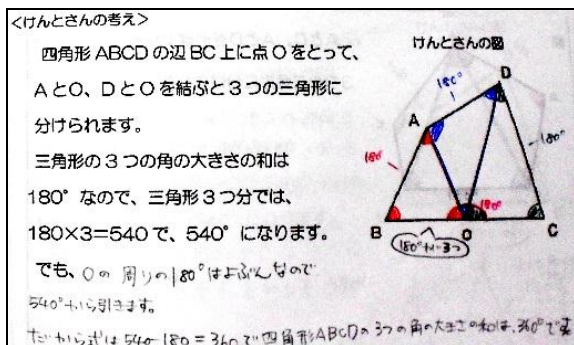 <けんとさんの考え>
四角形ABCDの辺BC上に点Oをとって、
AとO、DとOを結ぶと3つの三角形に
分けられます。
三角形の3つの角の大きさの和は
180°なので、三角形3つ分では、
180×3=540で、540°になります。
でも、Oの周りの180°はよぶんなので
540°から引きます。
だから式は540-180=360で四角形ABCDの3つの角の大きさの和は、360°で
けんとさんの図
D
180°
A
180
180°
180°
B
O
C
180°が3つ